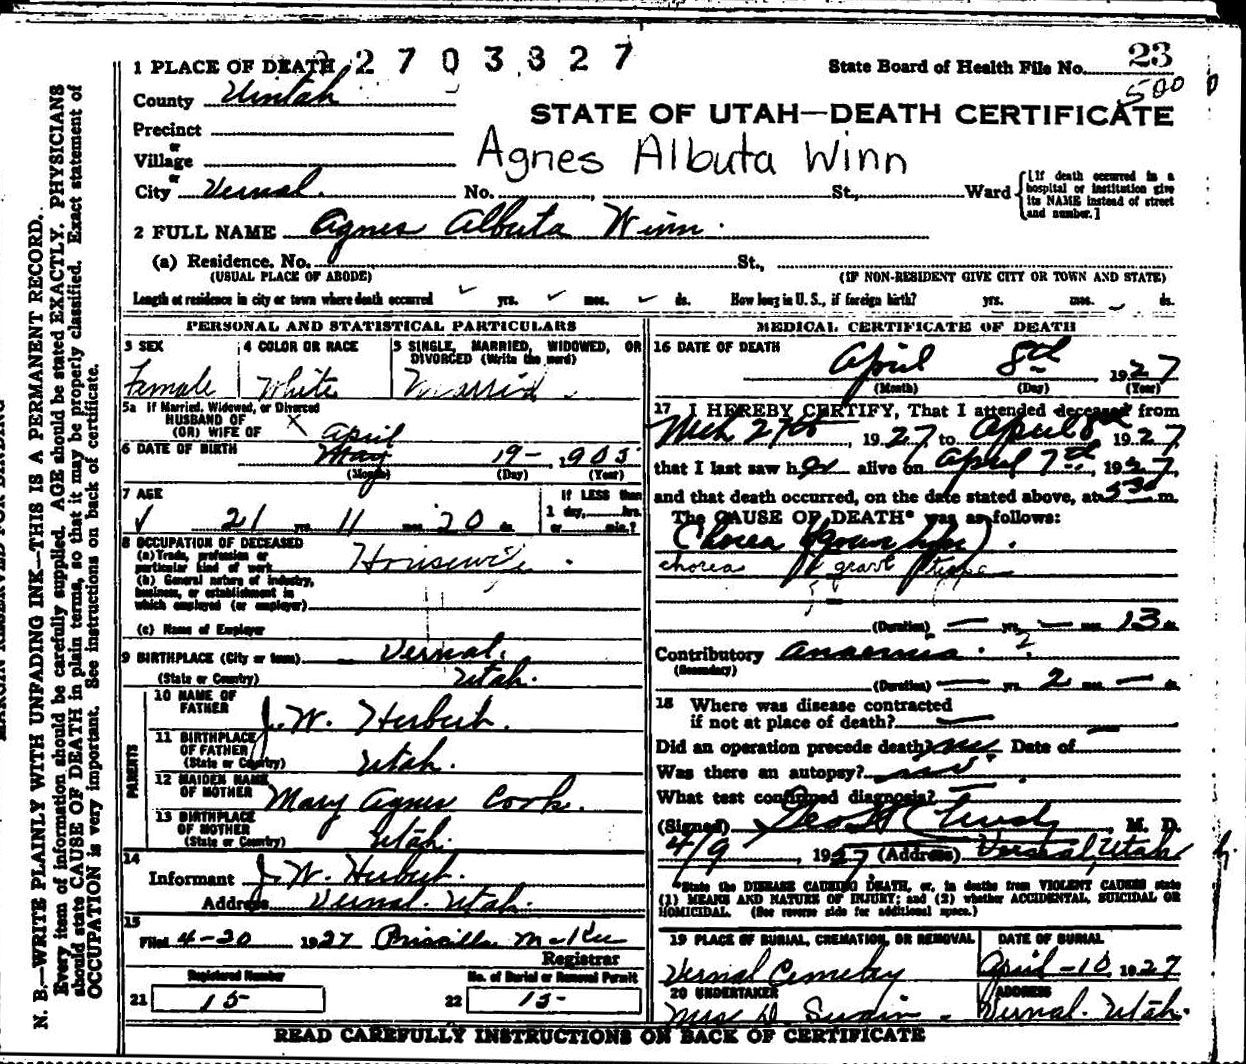 1 PLACE OF DEATH 2 7 0 3 3 2 7
State Board of Health File No. 23
500
County Uintah
STATE OF UTAH—DEATH CERTIFICATE
Precinct
or
Village
Agnes Albuta Winn
or
City Vernal. No. , St., Ward
[If death occurred in a hospital or institution give its NAME instead of street and number.]
2 FULL NAME Agnes Alburta Winn.
(a) Residence. No. St.,
(USUAL PLACE OF ABODE) (IF NON-RESIDENT GIVE CITY OR TOWN AND STATE)
Length of residence in city or town where death occurred yrs. mos. ds. How long in U. S., if foreign birth? yrs. mos. ds.
PERSONAL AND STATISTICAL PARTICULARS
3 SEX 4 COLOR OR RACE 5 SINGLE, MARRIED, WIDOWED, OR DIVORCED (Write the word)
Female White Married
5a If Married, Widowed, or Divorced
HUSBAND OF
(OR) WIFE OF X
April
6 DATE OF BIRTH May 19- , 1905
(Month) (Day) (Year)
7 AGE If LESS than
1 day, hrs.
21 yrs. 11 mos. 20 ds. or min.?
8 OCCUPATION OF DECEASED
(a) Trade, profession or particular kind of work Housewife
(b) General nature of industry, business, or establishment in which employed (or employer)
(c) Name of Employer
9 BIRTHPLACE (City or town) Vernal,
(State or Country) Utah.
PARENTS
10 NAME OF FATHER J. W. Herbert.
11 BIRTHPLACE OF FATHER
(State or Country) Utah.
12 MAIDEN NAME OF MOTHER Mary Agnes Cook.
13 BIRTHPLACE OF MOTHER
(State or Country) Utah.
14
Informant J. W. Herbert.
Address Vernal. Utah.
15
Filed 4-20 1927 Priscilla McKee
Registrar
Registered Number No. of Burial or Removal Permit
21 15 22 15-
MEDICAL CERTIFICATE OF DEATH
16 DATE OF DEATH
April 8th 1927
(Month) (Day) (Year)
17 I HEREBY CERTIFY, That I attended deceased from
Mch 27th , 1927 to April 8th 1927
that I last saw her alive on April 7th, 1927,
and that death occurred, on the date stated above, at 530 m.
The CAUSE OF DEATH* was as follows:
Chorea
chorea
(Duration) yrs. mos. 13 ds.
Contributory Anaemia. ?
(Secondary)
(Duration) yrs. 2 mos. ds.
18 Where was disease contracted
if not at place of death?
Did an operation precede death? no Date of
Was there an autopsy? no
What test confirmed diagnosis?
(Signed) M. D.
4/9 , 1927 (Address) Vernal, Utah
*State the DISEASE CAUSING DEATH, or, in deaths from VIOLENT CAUSES state
(1) MEANS AND NATURE OF INJURY; and (2) whether ACCIDENTAL, SUICIDAL OR
HOMICIDAL. (See reverse side for additional space.)
19 PLACE OF BURIAL, CREMATION, OR REMOVAL DATE OF BURIAL
Vernal Cemetery April-10, 1927
20 UNDERTAKER ADDRESS
Mrs D Swain - Vernal. Utah.
READ CAREFULLY INSTRUCTIONS ON BACK OF CERTIFICATE
N. B.—WRITE PLAINLY WITH UNFADING INK—THIS IS A PERMANENT RECORD.
Every item of information should be carefully supplied. AGE should be stated EXACTLY. PHYSICIANS
should state CAUSE OF DEATH in plain terms, so that it may be properly classified. Exact statement of
OCCUPATION is very important. See instructions on back of certificate.
MARGIN RESERVED FOR BINDING